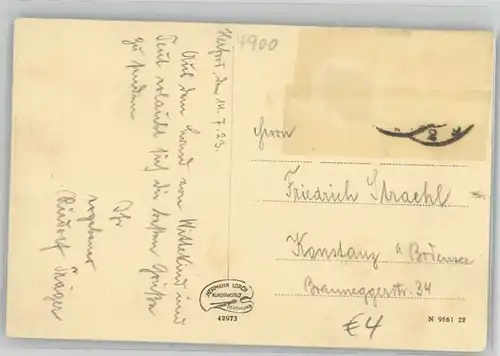 4900
Herford, den 14.7.23.
Aus dem Land von Wittekind und
Teut erlaubt sich die besten Grüße
zu senden
Ihr
ergebener
Rudolf Träger
Herrn
Friedrich Straehl
Konstanz a Bodensee
Brauneggerstr. 34
HERMANN LORCH
KUNSTANSTALT
DORTMUND
42973
€4
N 9561 22